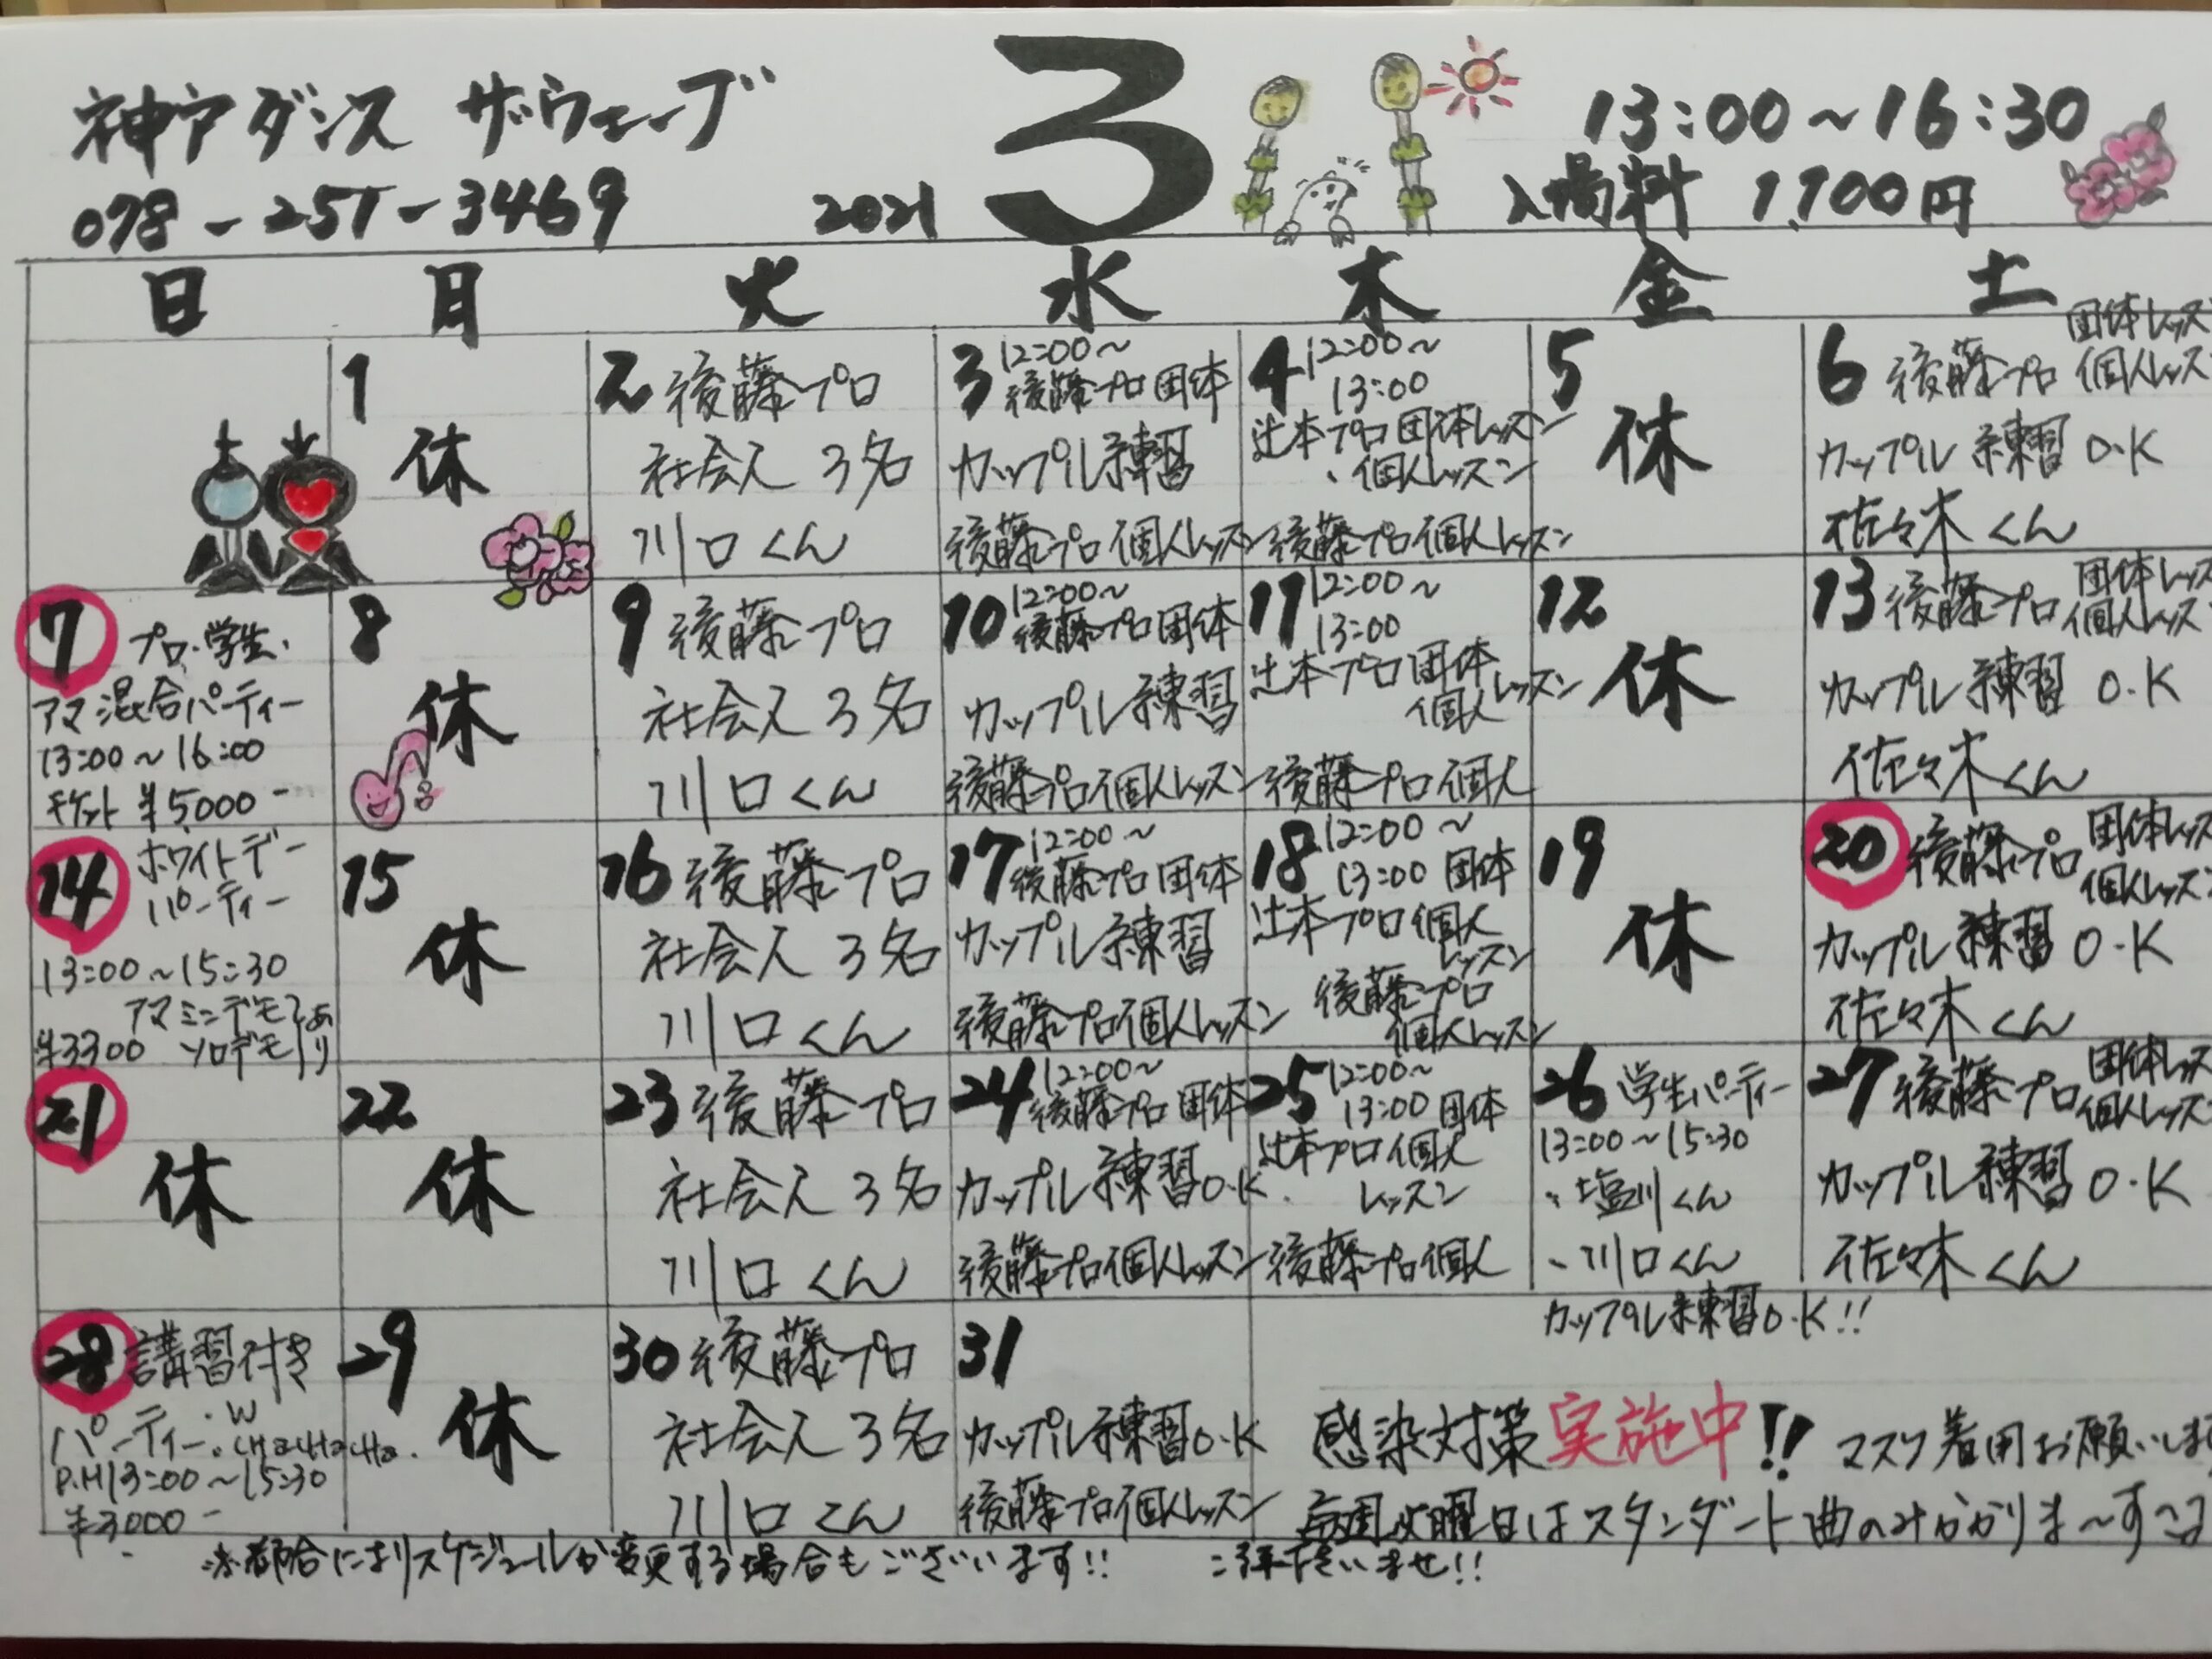 神戸ダンス ザ・ウェーブ
078-251-3469
2021 3
13:00~16:30
入場料 1,100円
日 月 火 水 木 金 土
1
休
2 後藤プロ
社会人 3名
川口くん
3 12:00~
後藤プロ団体
カップル練習
後藤プロ個人レッスン
4 12:00~
13:00
辻本プロ団体レッスン
、個人レッスン
後藤プロ個人レッスン
5
休
6 後藤プロ
団体レッス
個人レッス
カップル練習 O.K
佐々木くん
7 プロ・学生・
アマ混合パーティー
13:00~16:00
チケット ¥5,000-
8
休
9 後藤プロ
社会人 3名
川口くん
10 12:00~
後藤プロ団体
カップル練習
後藤プロ個人レッスン
11 12:00~
13:00
辻本プロ団体
個人レッスン
後藤プロ個人
12
休
13 後藤プロ
団体レッス
個人レッス
カップル練習 O.K
佐々木くん
14 ホワイトデー
パーティー
13:00~15:30
アマミニデモ
¥3300 ソロデモ
あり
15
休
16 後藤プロ
社会人 3名
川口くん
17 12:00~
後藤プロ団体
カップル練習
後藤プロ個人レッスン
18 12:00~
13:00 団体
辻本プロ個人
レッスン
後藤プロ
個人レッスン
19
休
20 後藤プロ
団体レッス
個人レッスン
カップル練習 O.K
佐々木くん
21
休
22
休
23 後藤プロ
社会人 3名
川口くん
24 12:00~
後藤プロ団体
カップル練習O.K
後藤プロ個人レッスン
25 12:00~
13:00 団体
辻本プロ個人
レッスン
後藤プロ個人
26 学生パーティー
13:00~15:30
、塩川くん
、川口くん
カップル練習O.K!!
27 後藤プロ
団体レッス
個人レッスン
カップル練習 O.K
佐々木くん
28 講習付き
パーティー・W
・CHaCHaCHa.
P.M13:00~15:30
¥3000-
29
休
30 後藤プロ
社会人 3名
川口くん
31
カップル練習O.K
後藤プロ個人レッスン
感染対策実施中!! マスク着用お願いしま
毎週火曜日はスタンダート曲のみかかりま~す
※都合によりスケジュールが変更する場合もございます!! ご了承下さいませ!!